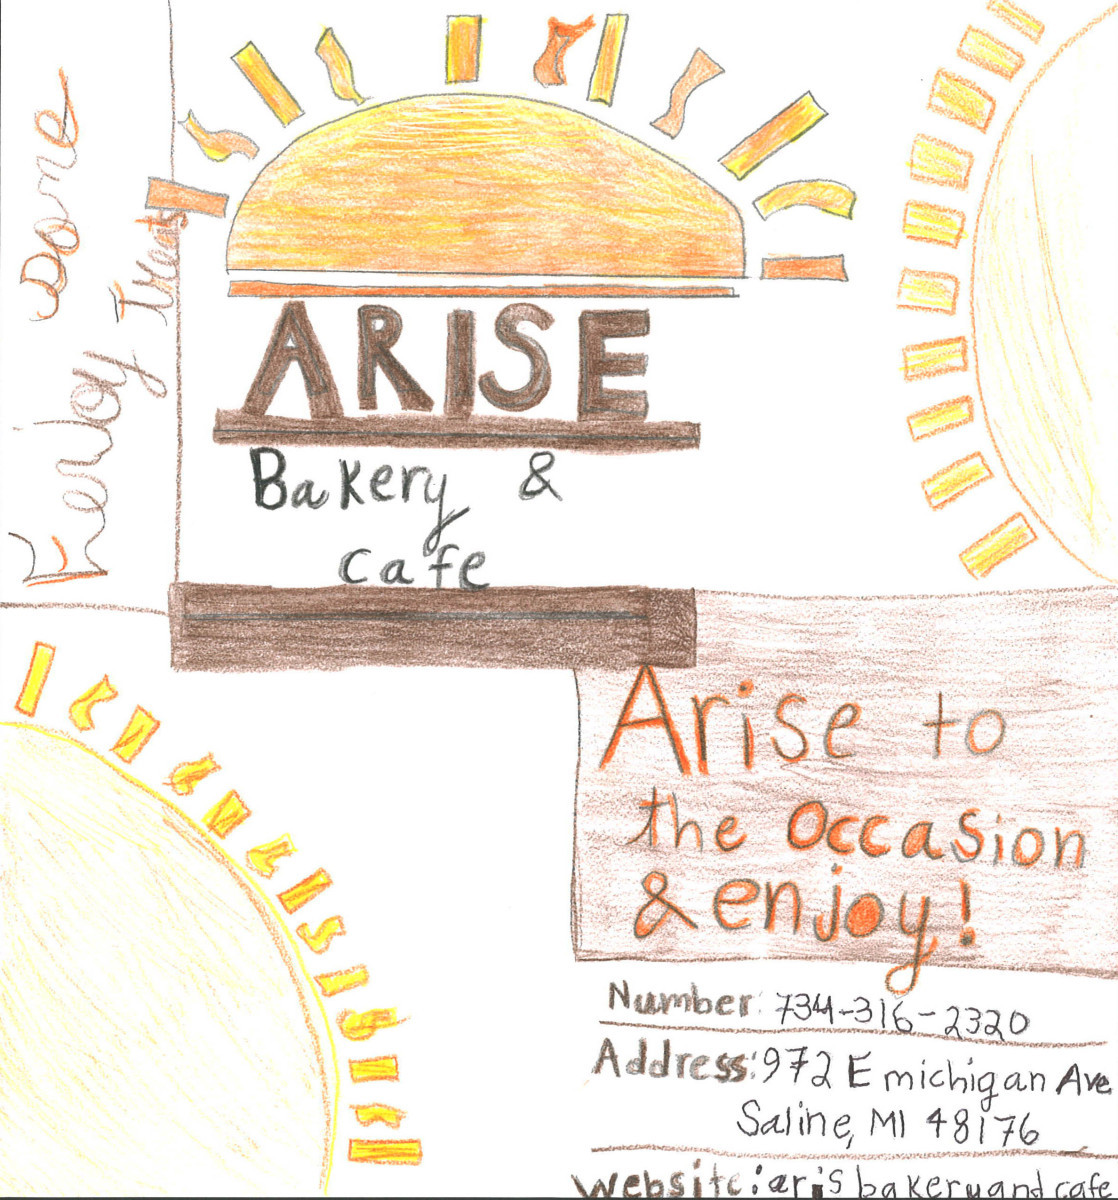 ARISE
Bakery &
Cafe
Arise to
the Occasion
& enjoy!
Number: 734-316-2320
Address: 972 E michigan Ave
Saline, MI 48176
website: aris bakeryandcafe
Done
treats